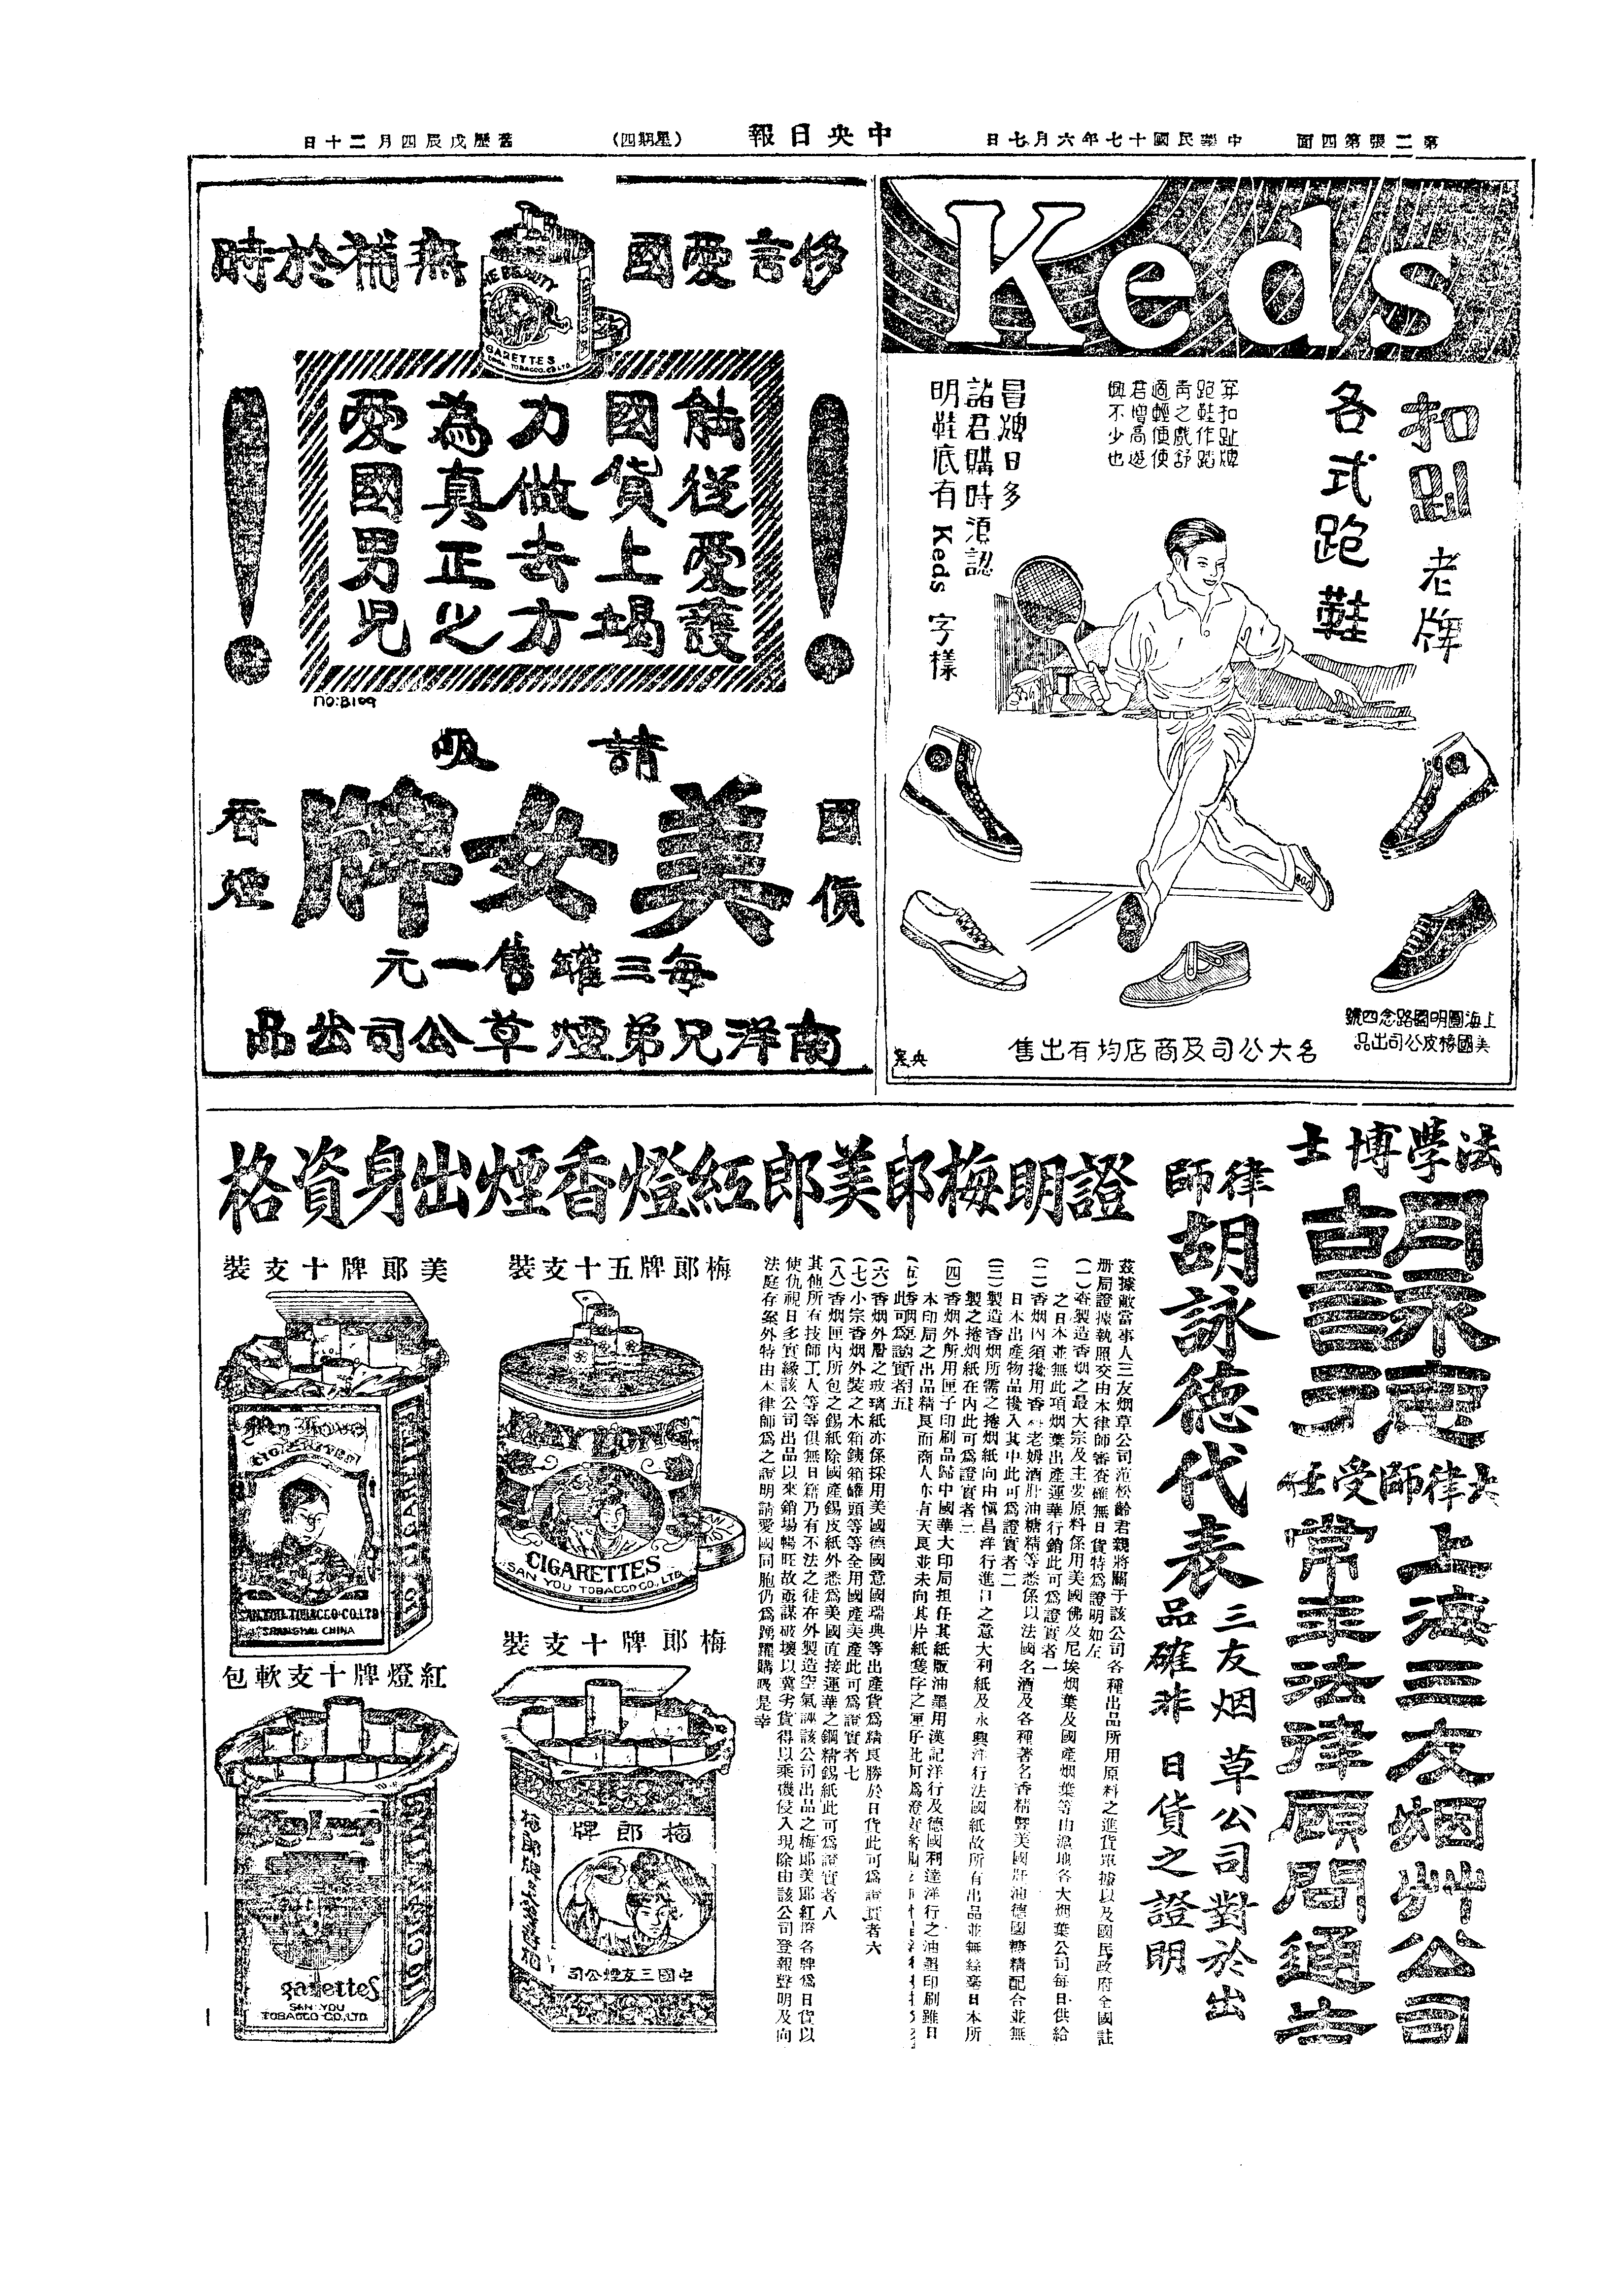 第二張第四面
中華民國十七年六月七日
中央日報
(星期四)
舊歷戊辰四月二十日
Keds
扣趾老牌
各式跑鞋
穿扣趾牌
跑鞋作蹈
青之戲舒
適輕便使
君增高遊
興不少也
冒牌日多
諸君購時須認
明鞋底有 Keds 字樣
上海圓明園路念四號
美國橡皮公司出品
各大公司及商店均有出售
侈言愛國
無補於時
THE BEAUTY
CIGARETTES
能從愛護
國貨上竭
力做去方
為真正之
愛國男兒
NO:B109
請吸
國貨
美女牌
香煙
每三罐售一元
南洋兄弟煙草公司出品
法學博士
律師
胡詠德
大律師受任
上海三友烟艸公司
常年法律顧問通告
胡詠德代表
三友烟草公司對於出
品確非日貨之證明
證明梅郎美郎紅燈香煙出身資格
茲據敝當事人三友烟草公司范松齡君親將關于該公司各種出品所用原料之進貨單據以及國民政府全國註
册局證據執照交由本律師審查確無日貨特為證明如左
(一)查製造香烟之最大宗及主要原料係用美國佛及尼埃烟葉及國產烟葉等由滬地各大烟葉公司每日供給
之日本並無此項烟葉出產運華行銷此可為證實者一
(二)香烟內須攙用香料老姆酒肝油糖精等悉係以法國名酒及各種著名香精暨美國肝油德國糖精配合並無
日本出產物品攙入其中此可為證實者二
(三)製造香烟所需之捲烟紙向由愼昌洋行進口之意大利紙及永興洋行法國紙故所有出品並無絲毫日本所
製之捲烟紙在內此可為證實者三
(四)香烟外所用匣子印刷品歸中國華大印局担任其紙版油墨用漢記洋行及德國利達洋行之油墨印刷雖日
本印局之出品精良而商人亦有天良並未向其片紙隻字之
此可為證實者五
(六)香烟外層之玻璃紙亦係採用美國德國意國瑞典等出產貨為精良勝於日貨此可為證實者六
(七)小宗香烟外裝之木箱鐵箱罐頭等等全用國產美產此可為證實者七
(八)香烟匣內所包之錫紙除國產錫皮紙外悉為美國直接運華之鋼精錫紙此可為證實者八
其他所有技師工人等等俱無日籍乃有不法之徒在外製造空氣誣該公司出品之梅郎美郎紅燈各牌為日貨以
使仇視日多實緣該公司出品以來銷場暢旺故蓄謀破壞以冀劣貨得以乘機侵入現除由該公司登報聲明及向
法庭存案外特由本律師為之證明請愛國同胞仍為踴躍購吸是幸
梅郎牌五十支裝
MAY LONG
CIGARETTES
SAN YOU TOBACCO CO., LTD.
美郎牌十支裝
10 CIGARETTES
SAN YOU TOBACCO CO LTD
SHANGHAI CHINA
梅郎牌十支裝
梅郎牌
中國三友煙公司
紅燈牌十支軟包
10 CIGARETTES
garettes
SAN YOU
TOBACCO CO., LTD.